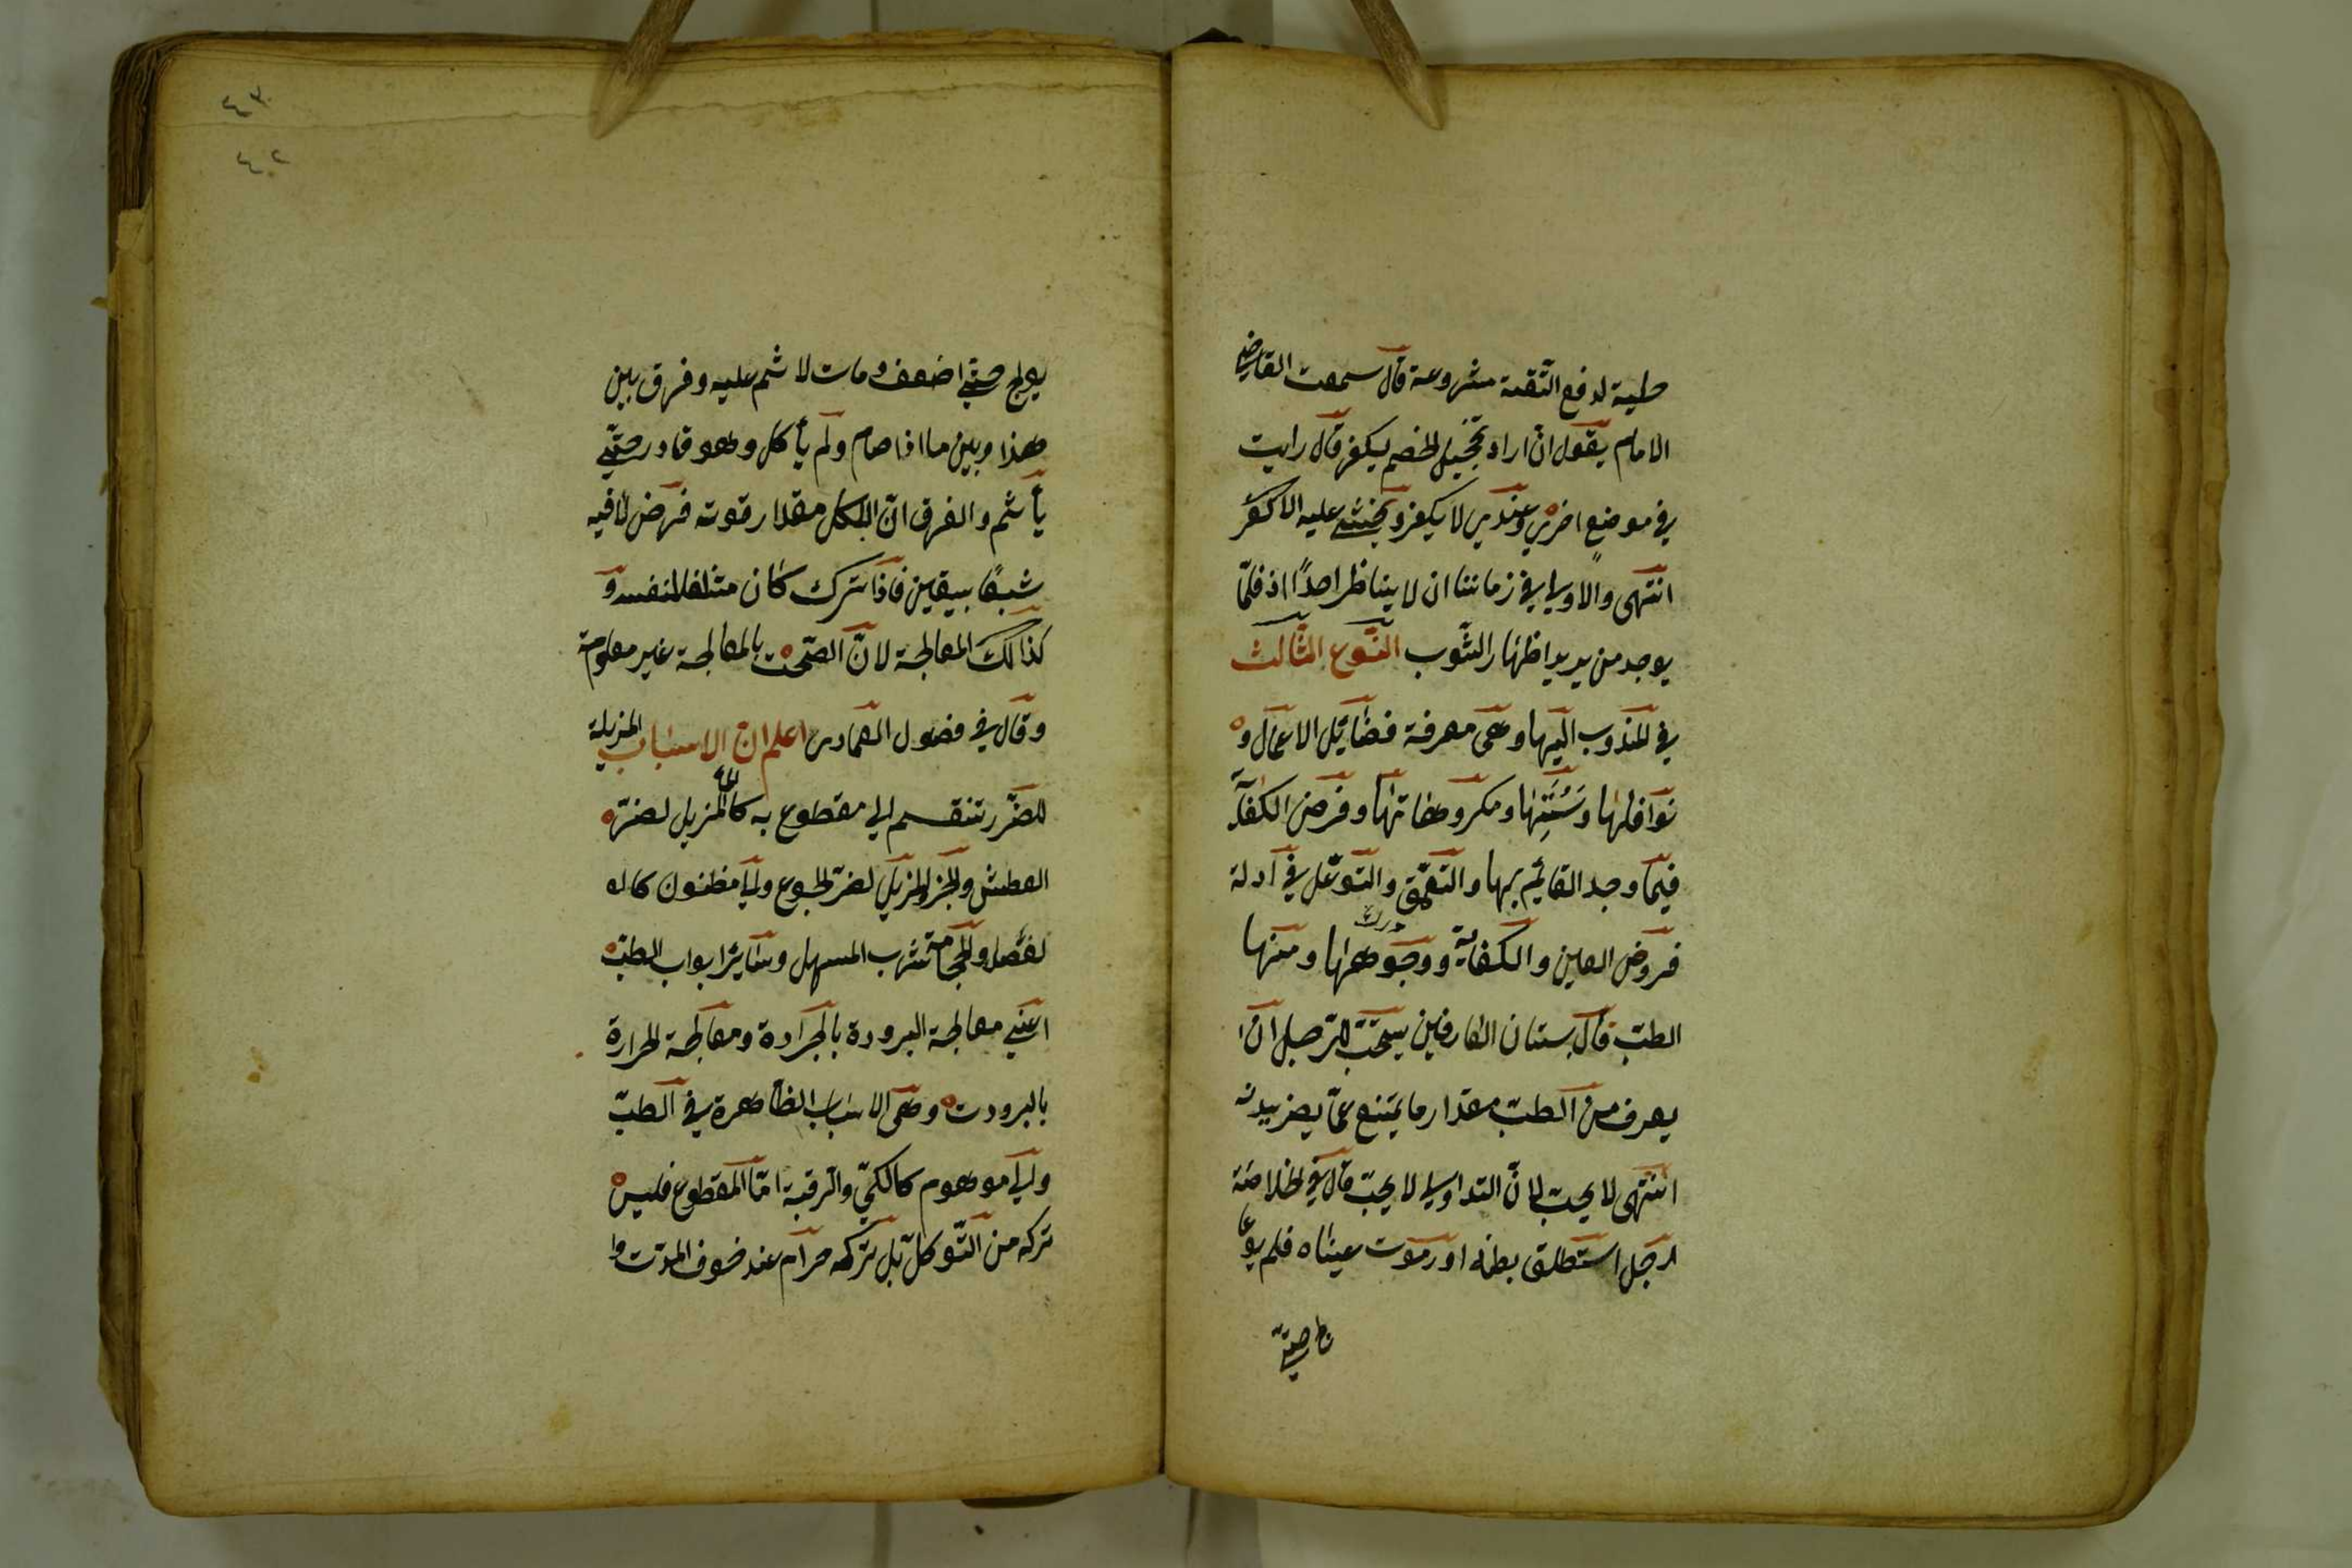 حيلة لدفع التعنت مشروعة قال سمعت القاضي
الامام يقول ان اراد تخجيل الخصم يكفر قال رايت
في موضع اخر وعندي لا يكفر ويخشى عليه الكفر
انتهى والاولى في زماننا ان لا يناظر احدًا اذ قلّما
يوجد من يريد اظهار الثّوب النّوع الثّالث
في المندوب اليها وهى معرفة فضائل الاعمال و
نوافلها وسُنَنِها ومكروهاتها وفرض الكفاية
فيما وجد القائم بها والتعمّق والتوغّل في ادلة
فروض العين والكفاية ووجوهها ومنها
الطبّ قال بستان العارفين يستحبّ للرّجل ان
يعرف من الطبّ مقدار ما يمتنع عمّا يضرّ ببدنه
انتهى لا يجب لانّ التداوي لا يجب قال في الخلاصة
رجل استطلق بطنه او رمدت عيناه فلم يعا
لج حتّى
٤٣
٤٠٢
يعالج حتّى اضعف ومات لا اثم عليه وفرق بين
هذا وبين ما اذا صام ولم يأكل وهو قادر حتّى
يأثم والفرق انّ الاكل مقدار قوته فرض لأ فيه
شبعًا بيقين فاذا ترك كان متلفا لنفسه و
كذالك المعالجة لانّ الصّحت بالمعالجة غير معلومة
وقال في فصول العمادي اعلم انّ الاسباب المزيلة
للضّرر تنقسم الى مقطوع به كالماء المزيل لضرّ
العطش والخبز المزيل لضرّ الجوع والى مظنون كا له
لفصد والحجامة شرب المسهل وسائر ابواب الطبّ
اعني معالجة البرودة بالحرارة ومعالجة الحرارة
بالبرودت وهى الاسباب الظاهرة في الطبّ
والى موهوم كالكيّ والرّقية امّا المقطوع فليس
تركه من التّوكل بل تركه حرام عند خوف الموت وا